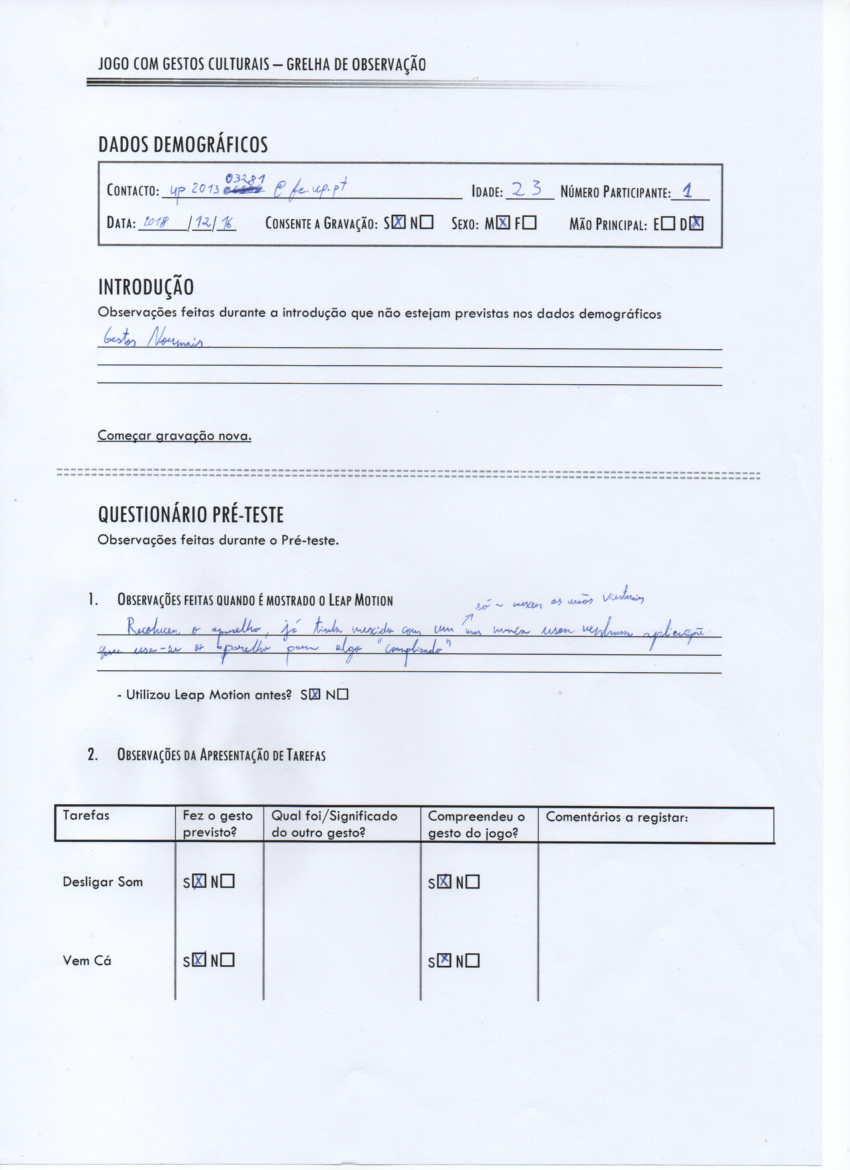 JOGO COM GESTOS CULTURAIS – GRELHA DE OBSERVAÇÃO
DADOS DEMOGRÁFICOS
CONTACTO: up 2013 03281 @ fe.up.pt IDADE: 23 NÚMERO PARTICIPANTE: 1
DATA: 2018 /12/ 16 CONSENTE A GRAVAÇÃO: S☒ N☐ SEXO: M☒ F☐ MÃO PRINCIPAL: E☐ D☒
INTRODUÇÃO
Observações feitas durante a introdução que não estejam previstas nos dados demográficos
Gestos Normais
Começar gravação nova.
QUESTIONÁRIO PRÉ-TESTE
Observações feitas durante o Pré-teste.
1. OBSERVAÇÕES FEITAS QUANDO É MOSTRADO O LEAP MOTION
só as mãos
o aparelho, já tinha mexido com um mas nunca usou nenhuma aplicação
que o aparelho para algo "complicado"
- Utilizou Leap Motion antes? S☒ N☐
2. OBSERVAÇÕES DA APRESENTAÇÃO DE TAREFAS
Tarefas Fez o gesto previsto? Qual foi/Significado do outro gesto? Compreendeu o gesto do jogo? Comentários a registar:
Desligar Som S☒ N☐ S☒ N☐
Vem Cá S☒ N☐ S☒ N☐